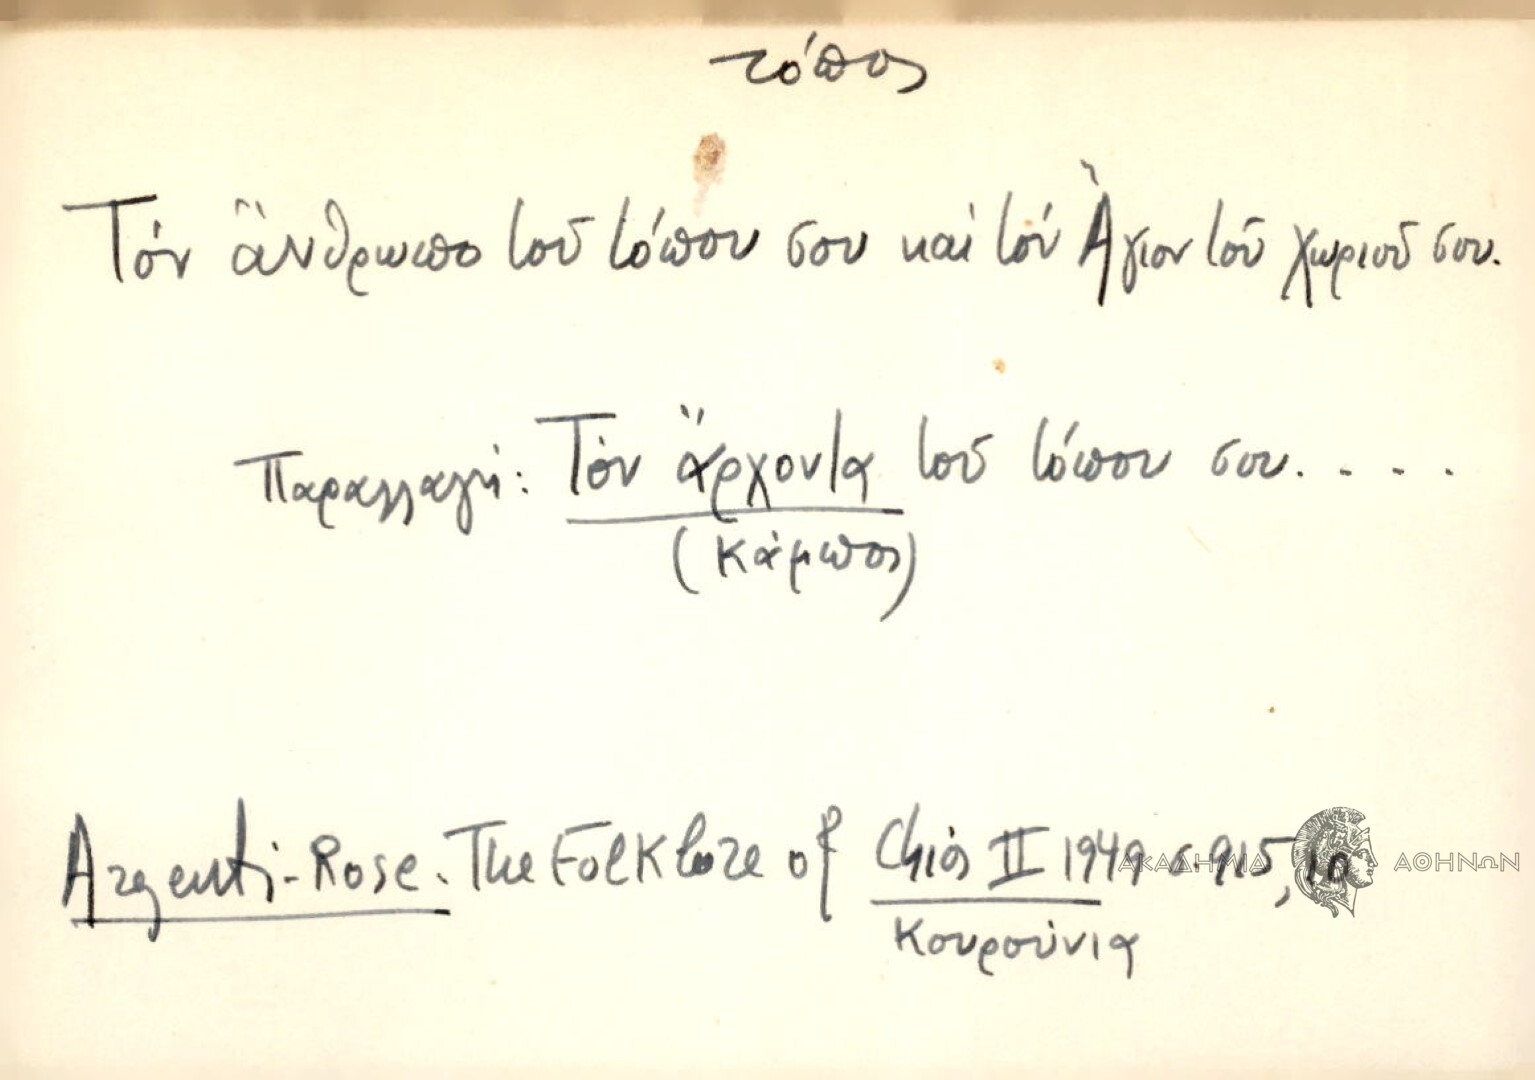 τόπος
Τόν ἄνθρωπο τοῦ τόπου σου καί τόν Ἅγιον τοῦ χωριοῦ σου.
Παραλλαγή: Τόν ἄρχοντα τοῦ τόπου σου. . . .
(Κάμπος)
Argenti-Rose. The Folklore of Chios II 1949 σ 915, 10
Κουρούνια
ΑΚΑΔΗΜΙΑ ΑΘΗΝΩΝ